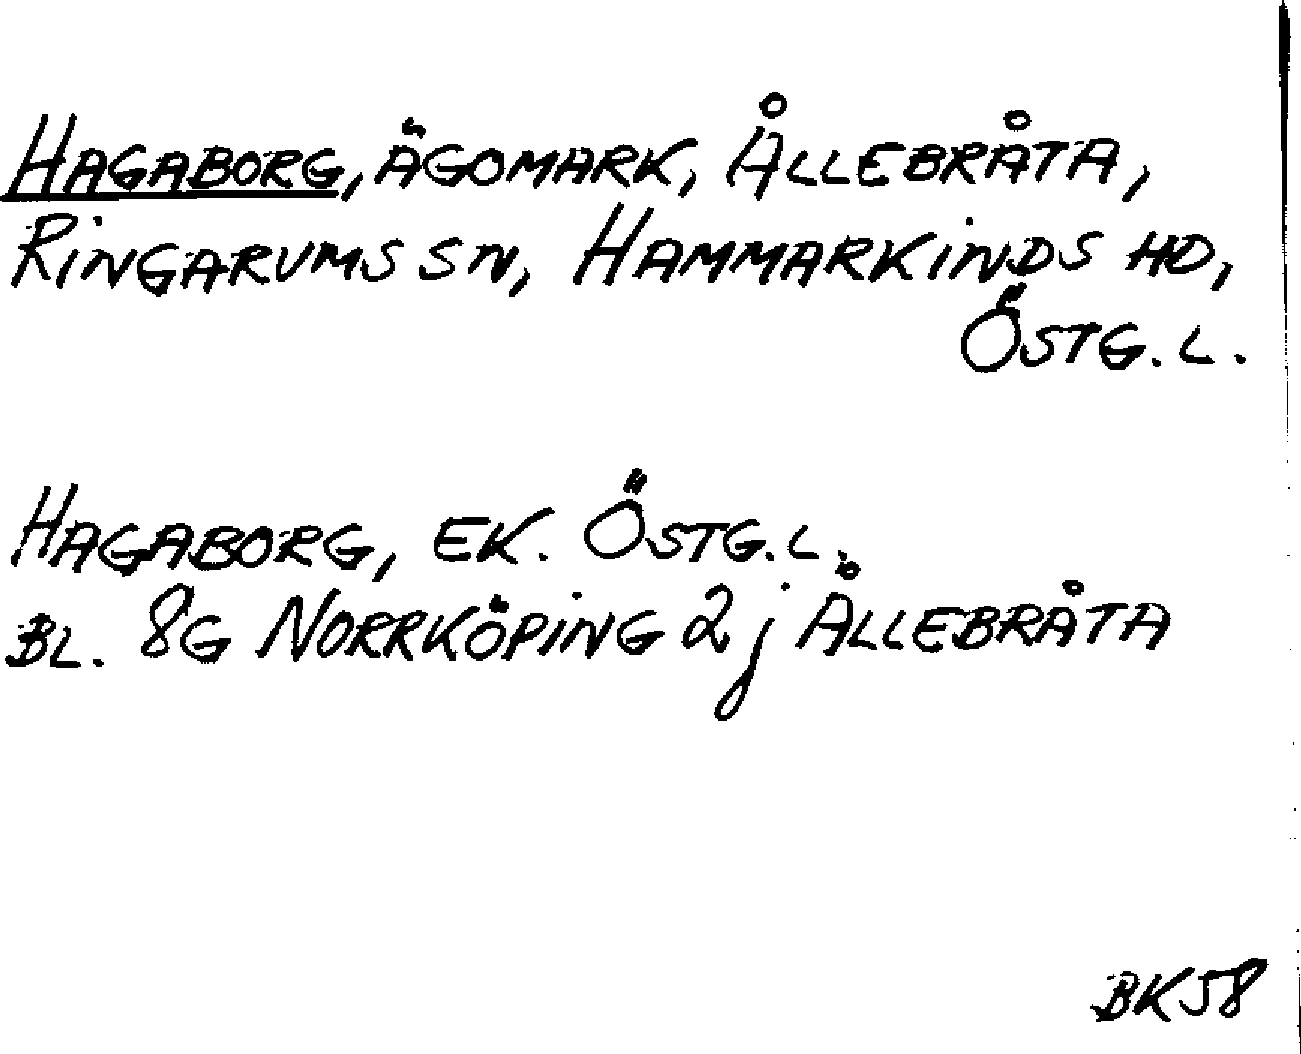 HAGABORG, ÄGOMARK, ÅLLEBRÅTA,
RINGARUMS SN, HAMMARKINDS HD,
ÖSTG. L.
HAGABORG, EK. ÖSTG. L.
BL. 8G NORRKÖPING 2j ÅLLEBRÅTA
BK58